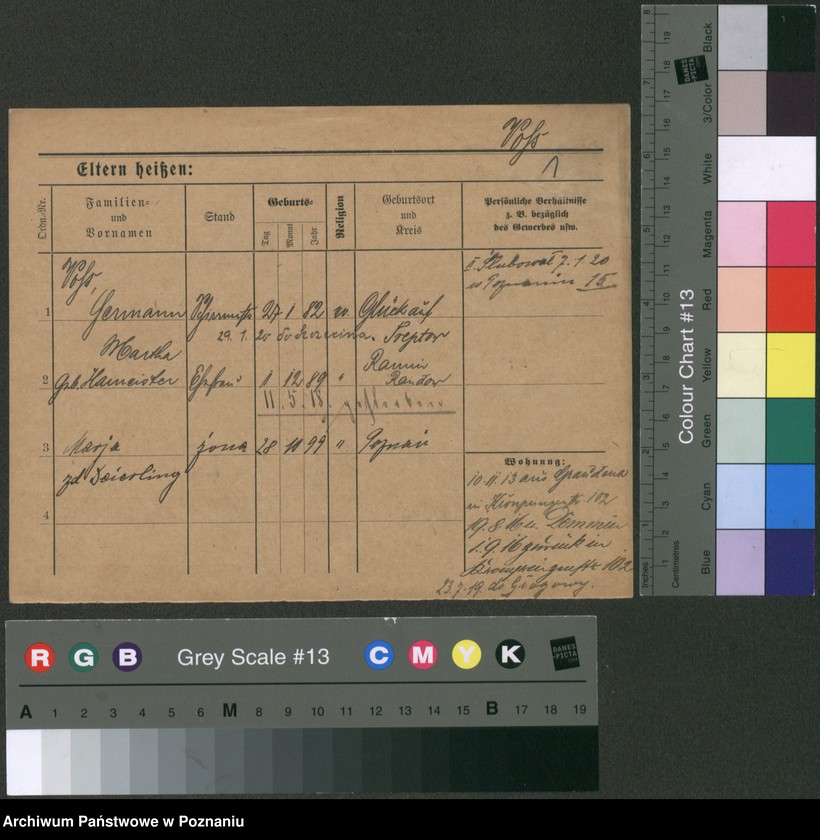 Voß
1
Eltern heißen:
Ordn.-Nr.
Familien- und Vornamen
Stand
Geburts-
Tag
Monat
Jahr
Religion
Geburtsort und Kreis
Persönliche Verhältnisse
z. B. bezüglich
des Gewerbes usw.
II. Ślubował 7. 1. 20
w Poznaniu 15
Voß,
1 Hermann 27 1 82 ev. Glückauf
29. 1. 20 do Szczecina. Treptow
Martha Ramin
2 geb. Hameister Ehefrau 1 12 89 " Randow
11. 5. 18. gestorben
3 Marja żona 28 10 99 " Poznań
zd Beierling
4
Wohnung:
10. 11. 13 aus Graudenz
in Kronprinzenstr 102
19. 8. 16 n.
1. 9. 16 zurück in
Kronprinzenstr 102
23. 7. 19. do
Archiwum Państwowe w Poznaniu
8
7
6
5
4
3
2
1
Inches
19
18
17
16
15
14
13
12
11
10
9
8
7
6
5
4
3
2
1
Centimetres
Colour Chart #13
DANES
-PICTA
Black
3/Color
White
Magenta
Red
Yellow
Green
Cyan
Blue
R G B Grey Scale #13 C M Y K
DANES
-PICTA
A 1 2 3 4 5 6 M 8 9 10 11 12 13 14 15 B 17 18 19